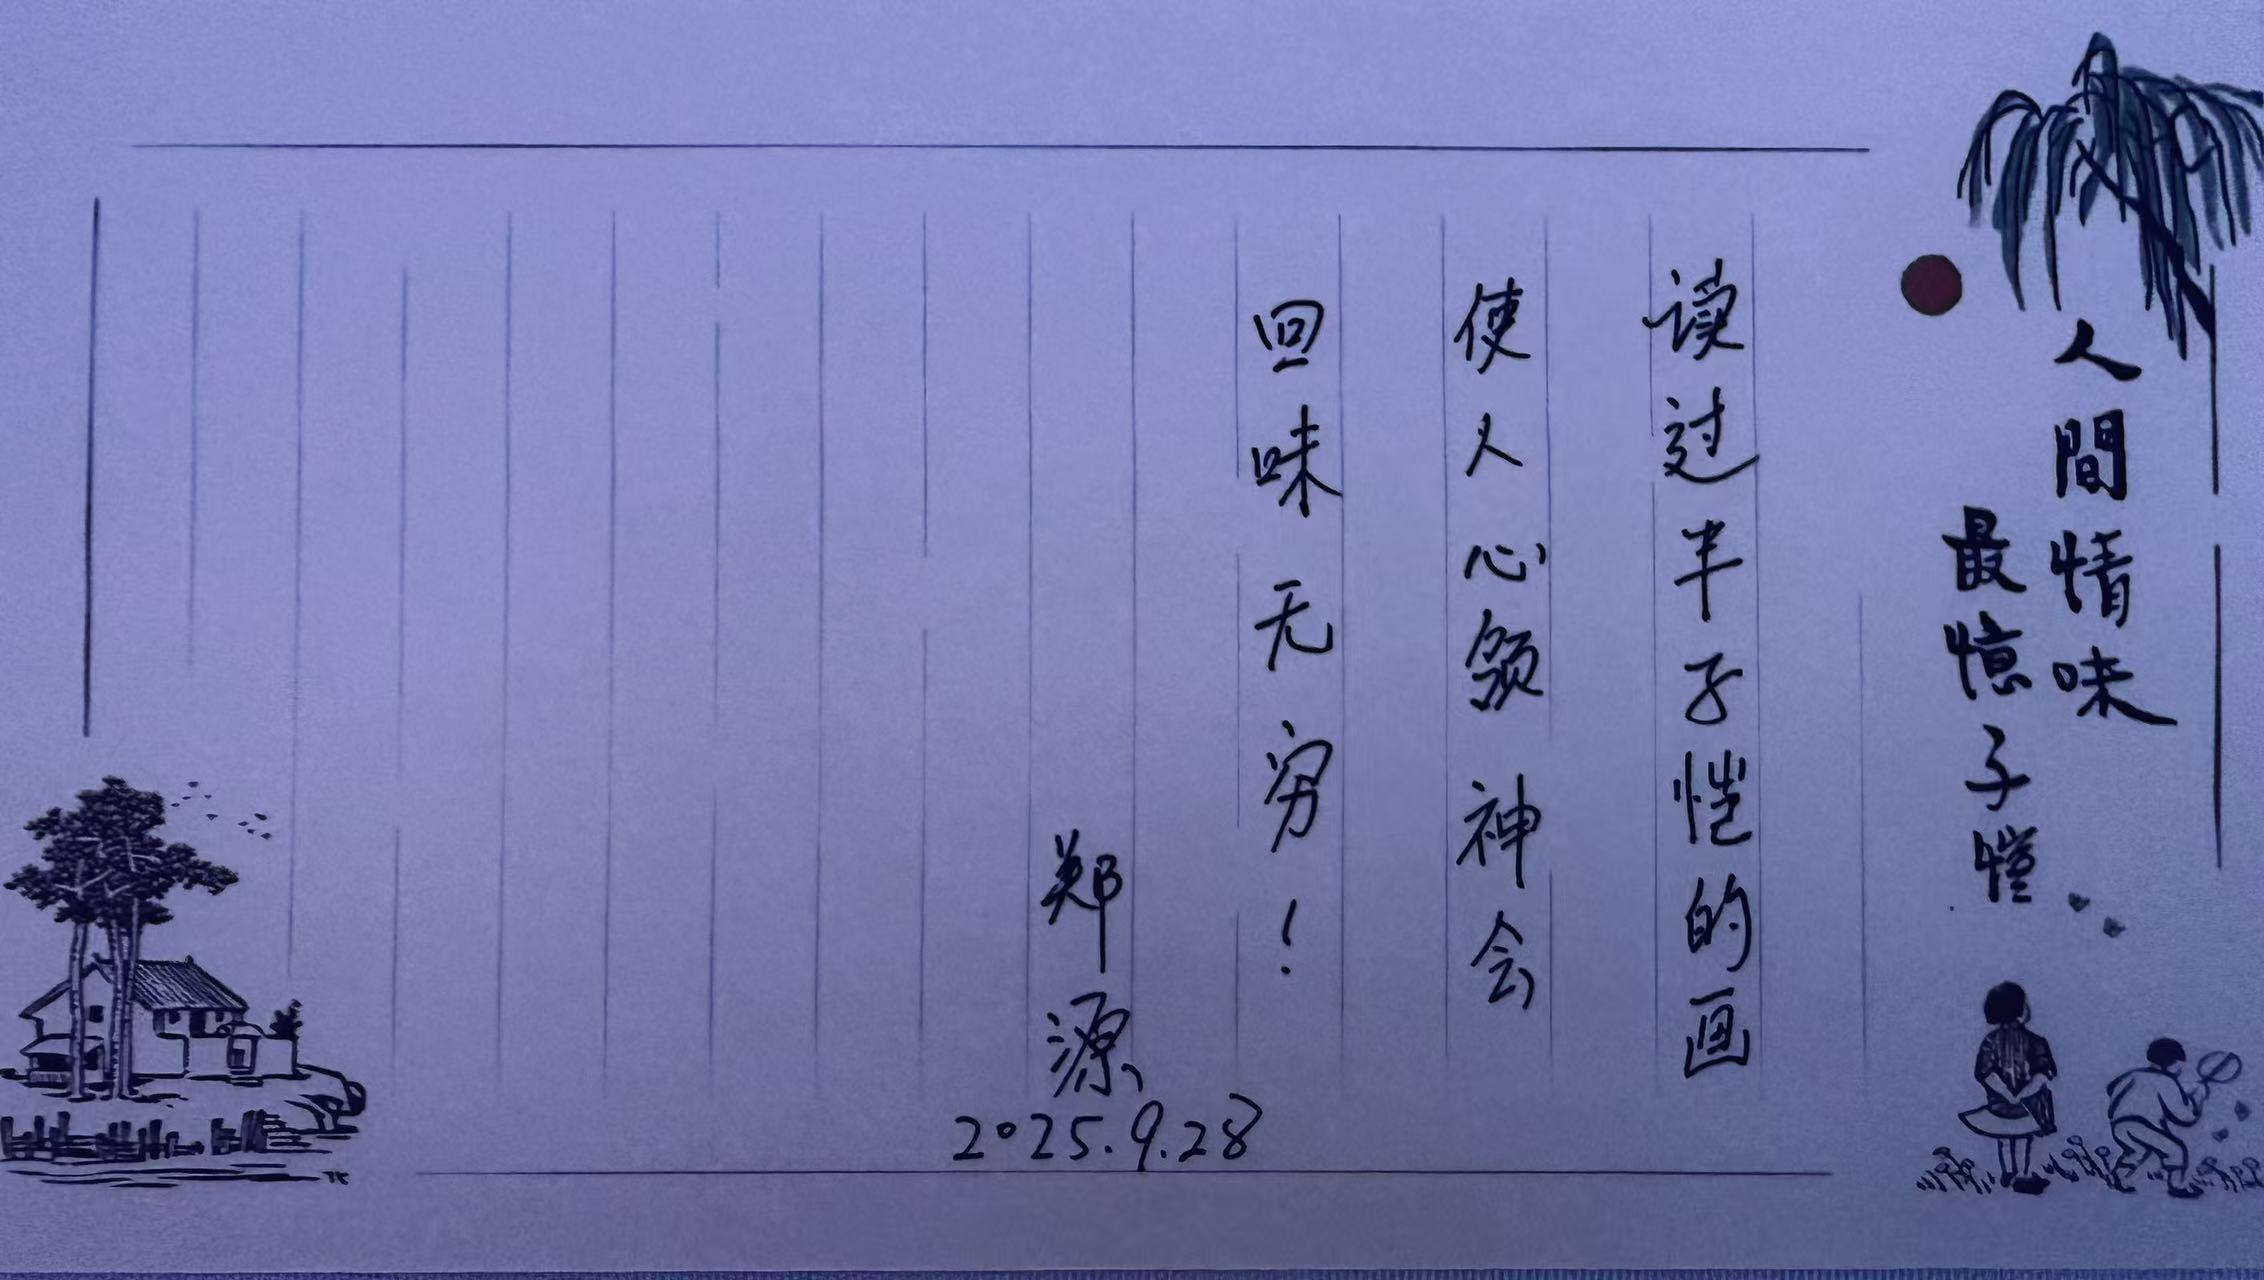 人間情味
最憶子愷
读过丰子恺的画
使人心领神会
回味无穷！
郑源
2025.9.28